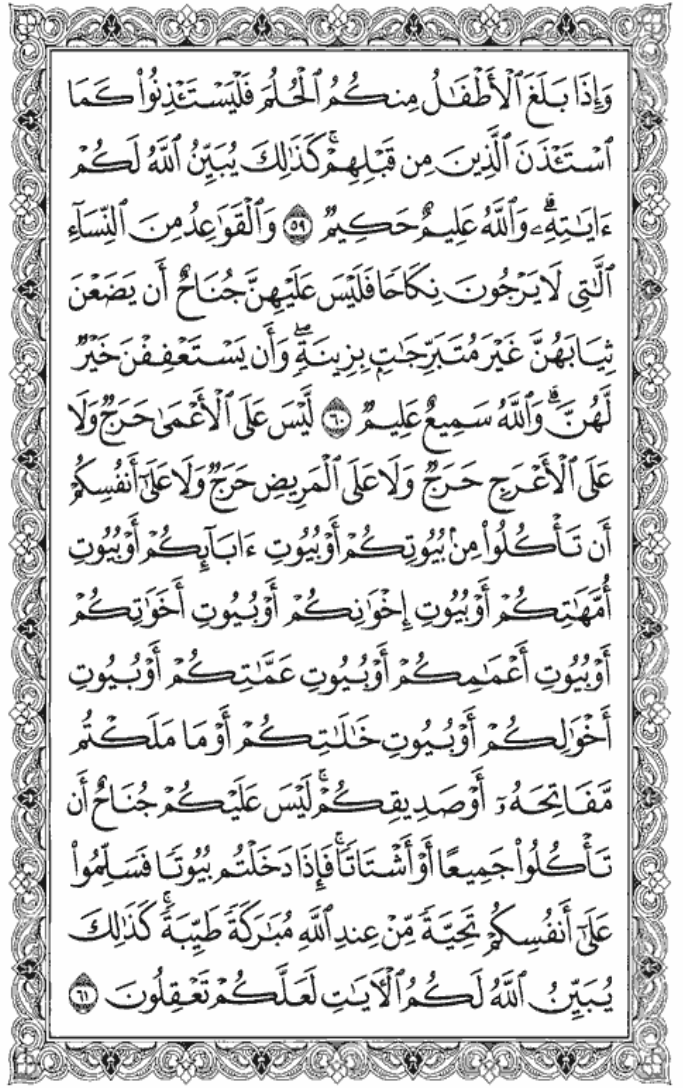 وَإِذَا بَلَغَ ٱلْأَطْفَٰلُ مِنكُمُ ٱلْحُلُمَ فَلْيَسْتَـْٔذِنُوا۟ كَمَا
ٱسْتَـْٔذَنَ ٱلَّذِينَ مِن قَبْلِهِمْ ۚ كَذَٰلِكَ يُبَيِّنُ ٱللَّهُ لَكُمْ
ءَايَٰتِهِۦ ۗ وَٱللَّهُ عَلِيمٌ حَكِيمٌ ٥٩ وَٱلْقَوَٰعِدُ مِنَ ٱلنِّسَآءِ
ٱلَّٰتِى لَا يَرْجُونَ نِكَاحًا فَلَيْسَ عَلَيْهِنَّ جُنَاحٌ أَن يَضَعْنَ
ثِيَابَهُنَّ غَيْرَ مُتَبَرِّجَٰتٍۭ بِزِينَةٍ ۖ وَأَن يَسْتَعْفِفْنَ خَيْرٌ
لَّهُنَّ ۗ وَٱللَّهُ سَمِيعٌ عَلِيمٌ ٦٠ لَّيْسَ عَلَى ٱلْأَعْمَىٰ حَرَجٌ وَلَا
عَلَى ٱلْأَعْرَجِ حَرَجٌ وَلَا عَلَى ٱلْمَرِيضِ حَرَجٌ وَلَا عَلَىٰٓ أَنفُسِكُمْ
أَن تَأْكُلُوا۟ مِنۢ بُيُوتِكُمْ أَوْ بُيُوتِ ءَابَآئِكُمْ أَوْ بُيُوتِ
أُمَّهَٰتِكُمْ أَوْ بُيُوتِ إِخْوَٰنِكُمْ أَوْ بُيُوتِ أَخَوَٰتِكُمْ
أَوْ بُيُوتِ أَعْمَٰمِكُمْ أَوْ بُيُوتِ عَمَّٰتِكُمْ أَوْ بُيُوتِ
أَخْوَٰلِكُمْ أَوْ بُيُوتِ خَٰلَٰتِكُمْ أَوْ مَا مَلَكْتُم
مَّفَاتِحَهُۥٓ أَوْ صَدِيقِكُمْ ۚ لَيْسَ عَلَيْكُمْ جُنَاحٌ أَن
تَأْكُلُوا۟ جَمِيعًا أَوْ أَشْتَاتًا ۚ فَإِذَا دَخَلْتُم بُيُوتًا فَسَلِّمُوا۟
عَلَىٰٓ أَنفُسِكُمْ تَحِيَّةً مِّنْ عِندِ ٱللَّهِ مُبَٰرَكَةً طَيِّبَةً ۚ كَذَٰلِكَ
يُبَيِّنُ ٱللَّهُ لَكُمُ ٱلْـَٔايَٰتِ لَعَلَّكُمْ تَعْقِلُونَ ٦١